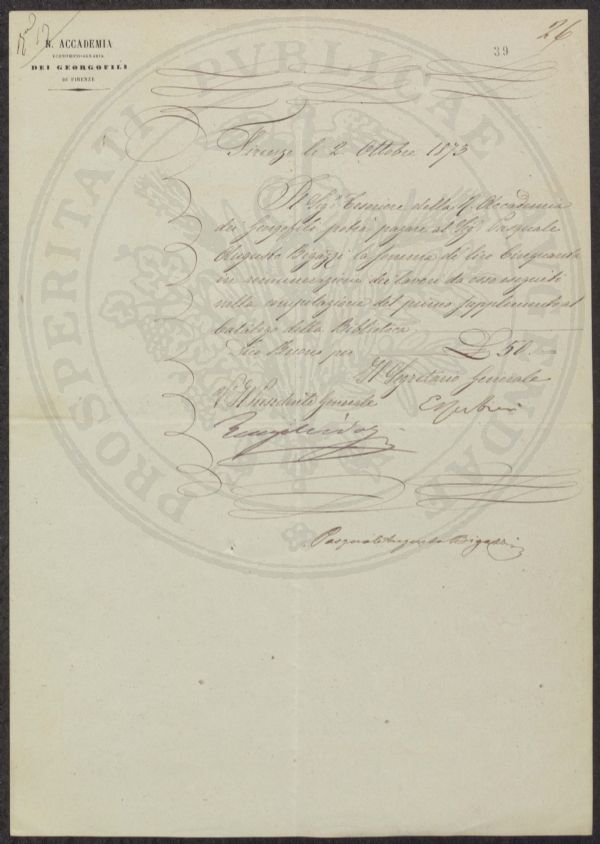 17
26
39
R. ACCADEMIA
ECONOMICO-AGRARIA
DEI GEORGOFILI
DI FIRENZE
PROSPERITATI PUBLICAE AUGENDAE
Firenze li 2 Ottobre 1873
Il Sig. Tesoriere della R. Accademia
dei Georgofili potrà pagare al Sig. Pasquale
Augusto Bigazzi la somma di lire Cinquanta
in remunerazione dei lavori da esso eseguiti
nella compilazione del primo Supplemento al
Catalogo della Biblioteca.
Dico Buono per £ 50.
Il Segretario Generale
V. Il Presidente Generale
Pasquale Augusto Bigazzi